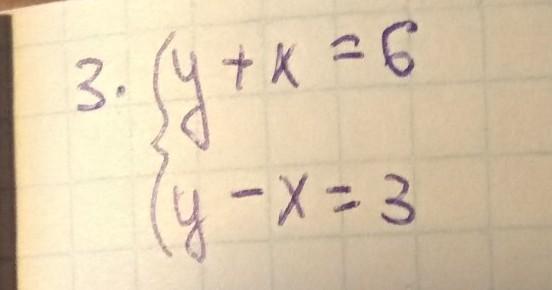 3. { y + x = 6
y - x = 3